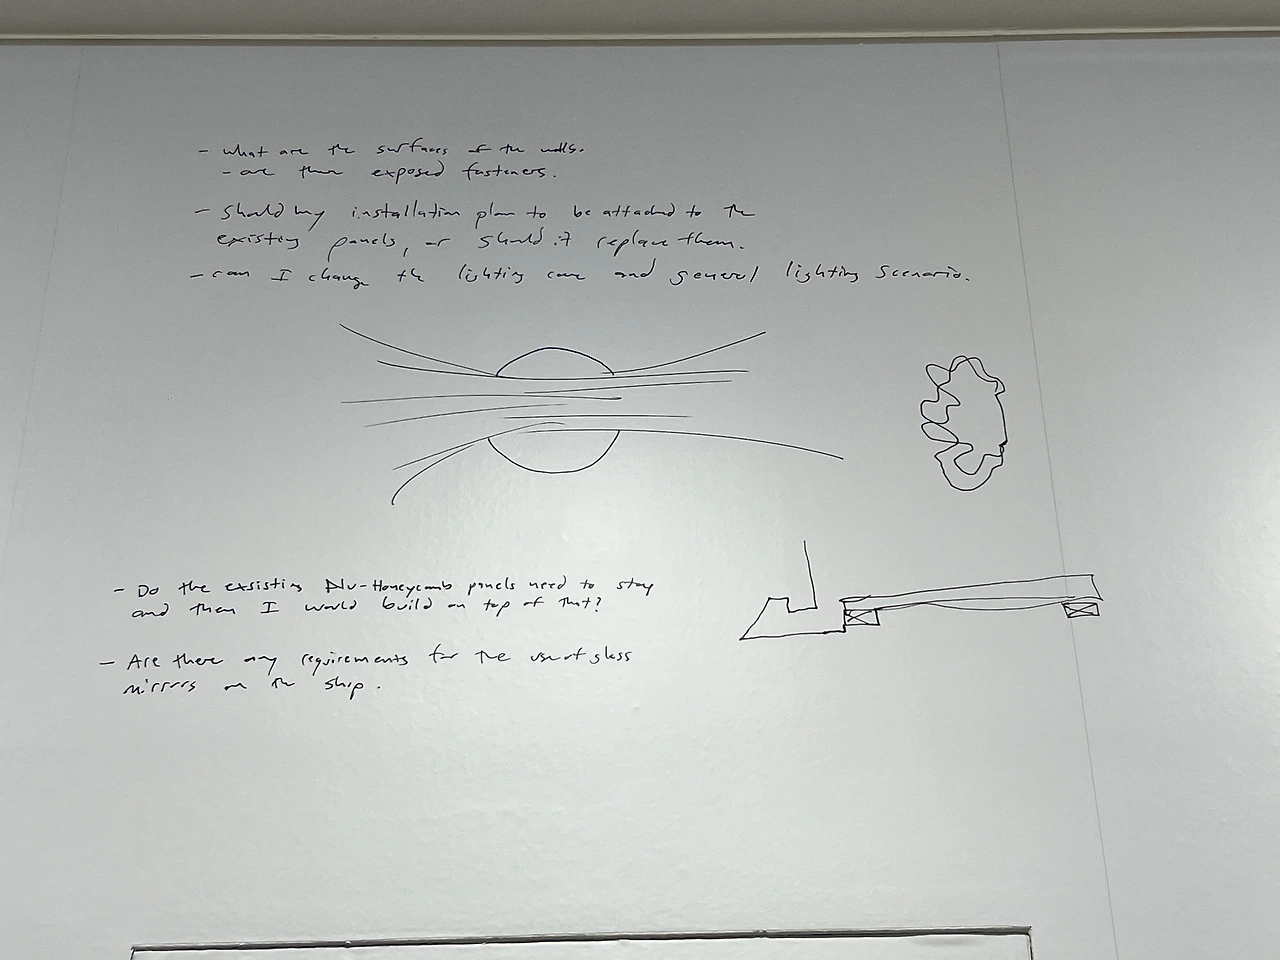 - what are the surfaces of the walls.
- are there exposed fasteners.
- Should my installation plan to be attached to the
existing panels, or should it replace them.
- can I change the lighting cove and general lighting scenario.
- Do the exsisting Alu-Honeycomb panels need to stay
and then I would build on top of that?
- Are there any requirements for the use of glass
mirrors on the ship.